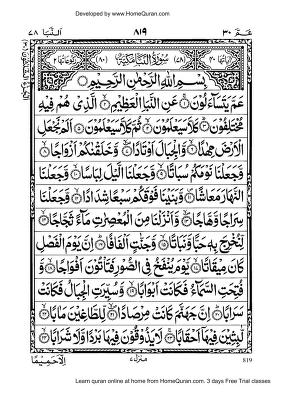 Developed by www.HomeQuran.com
عم ٣٠ ٨١٩ النبا ٧٨
اٰياتها ٤٠ (٧٨) سُوْرَةُ النَّبَاِ مَكِّيَّةٌ (٨٠) ركوعاتها ٢
بِسْمِ اللّٰهِ الرَّحْمٰنِ الرَّحِيْمِ
عَمَّ يَتَسَآءَلُوْنَ ① عَنِ النَّبَاِ الْعَظِيْمِ ② الَّذِيْ هُمْ فِيْهِ
مُخْتَلِفُوْنَ ③ كَلَّا سَيَعْلَمُوْنَ ④ ثُمَّ كَلَّا سَيَعْلَمُوْنَ ⑤ اَلَمْ نَجْعَلِ
الْاَرْضَ مِهٰدًا ⑥ وَّالْجِبَالَ اَوْتَادًا ⑦ وَّخَلَقْنٰكُمْ اَزْوَاجًا ⑧
وَّجَعَلْنَا نَوْمَكُمْ سُبَاتًا ⑨ وَّجَعَلْنَا الَّيْلَ لِبَاسًا ⑩ وَّجَعَلْنَا
النَّهَارَ مَعَاشًا ⑪ وَّبَنَيْنَا فَوْقَكُمْ سَبْعًا شِدَادًا ⑫ وَّجَعَلْنَا
سِرَاجًا وَّهَّاجًا ⑬ وَّاَنْزَلْنَا مِنَ الْمُعْصِرٰتِ مَآءً ثَجَّاجًا ⑭
لِّنُخْرِجَ بِهٖ حَبًّا وَّنَبَاتًا ⑮ وَّجَنّٰتٍ اَلْفَافًا ⑯ اِنَّ يَوْمَ الْفَصْلِ
كَانَ مِيْقَاتًا ⑰ يَّوْمَ يُنْفَخُ فِي الصُّوْرِ فَتَاْتُوْنَ اَفْوَاجًا ⑱ وَّ
فُتِحَتِ السَّمَآءُ فَكَانَتْ اَبْوَابًا ⑲ وَّسُيِّرَتِ الْجِبَالُ فَكَانَتْ
سَرَابًا ⑳ اِنَّ جَهَنَّمَ كَانَتْ مِرْصَادًا ㉑ لِّلطَّاغِيْنَ مَاٰبًا ㉒
لّٰبِثِيْنَ فِيْهَآ اَحْقَابًا ㉓ لَا يَذُوْقُوْنَ فِيْهَا بَرْدًا وَّلَا شَرَابًا ㉔
اِلَّا حَمِيْمًا منزل ٧ 819
Learn quran online at home from HomeQuran.com. 3 days Free Trial classes